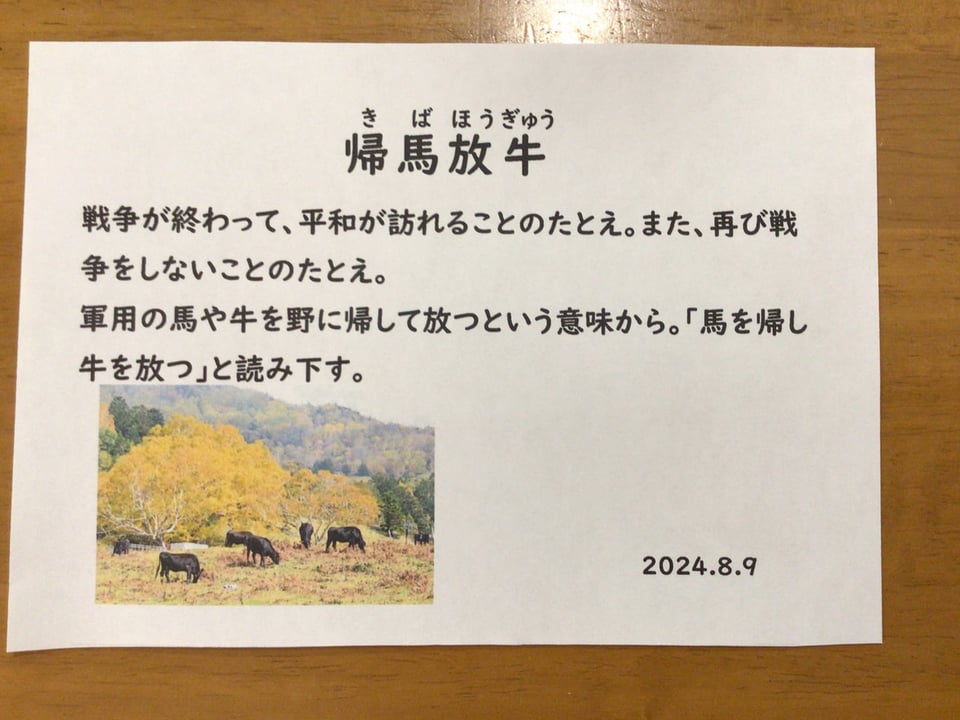 き ば ほうぎゅう
帰馬放牛
戦争が終わって、平和が訪れることのたとえ。また、再び戦
争をしないことのたとえ。
軍用の馬や牛を野に帰して放つという意味から。「馬を帰し
牛を放つ」と読み下す。
2024.8.9